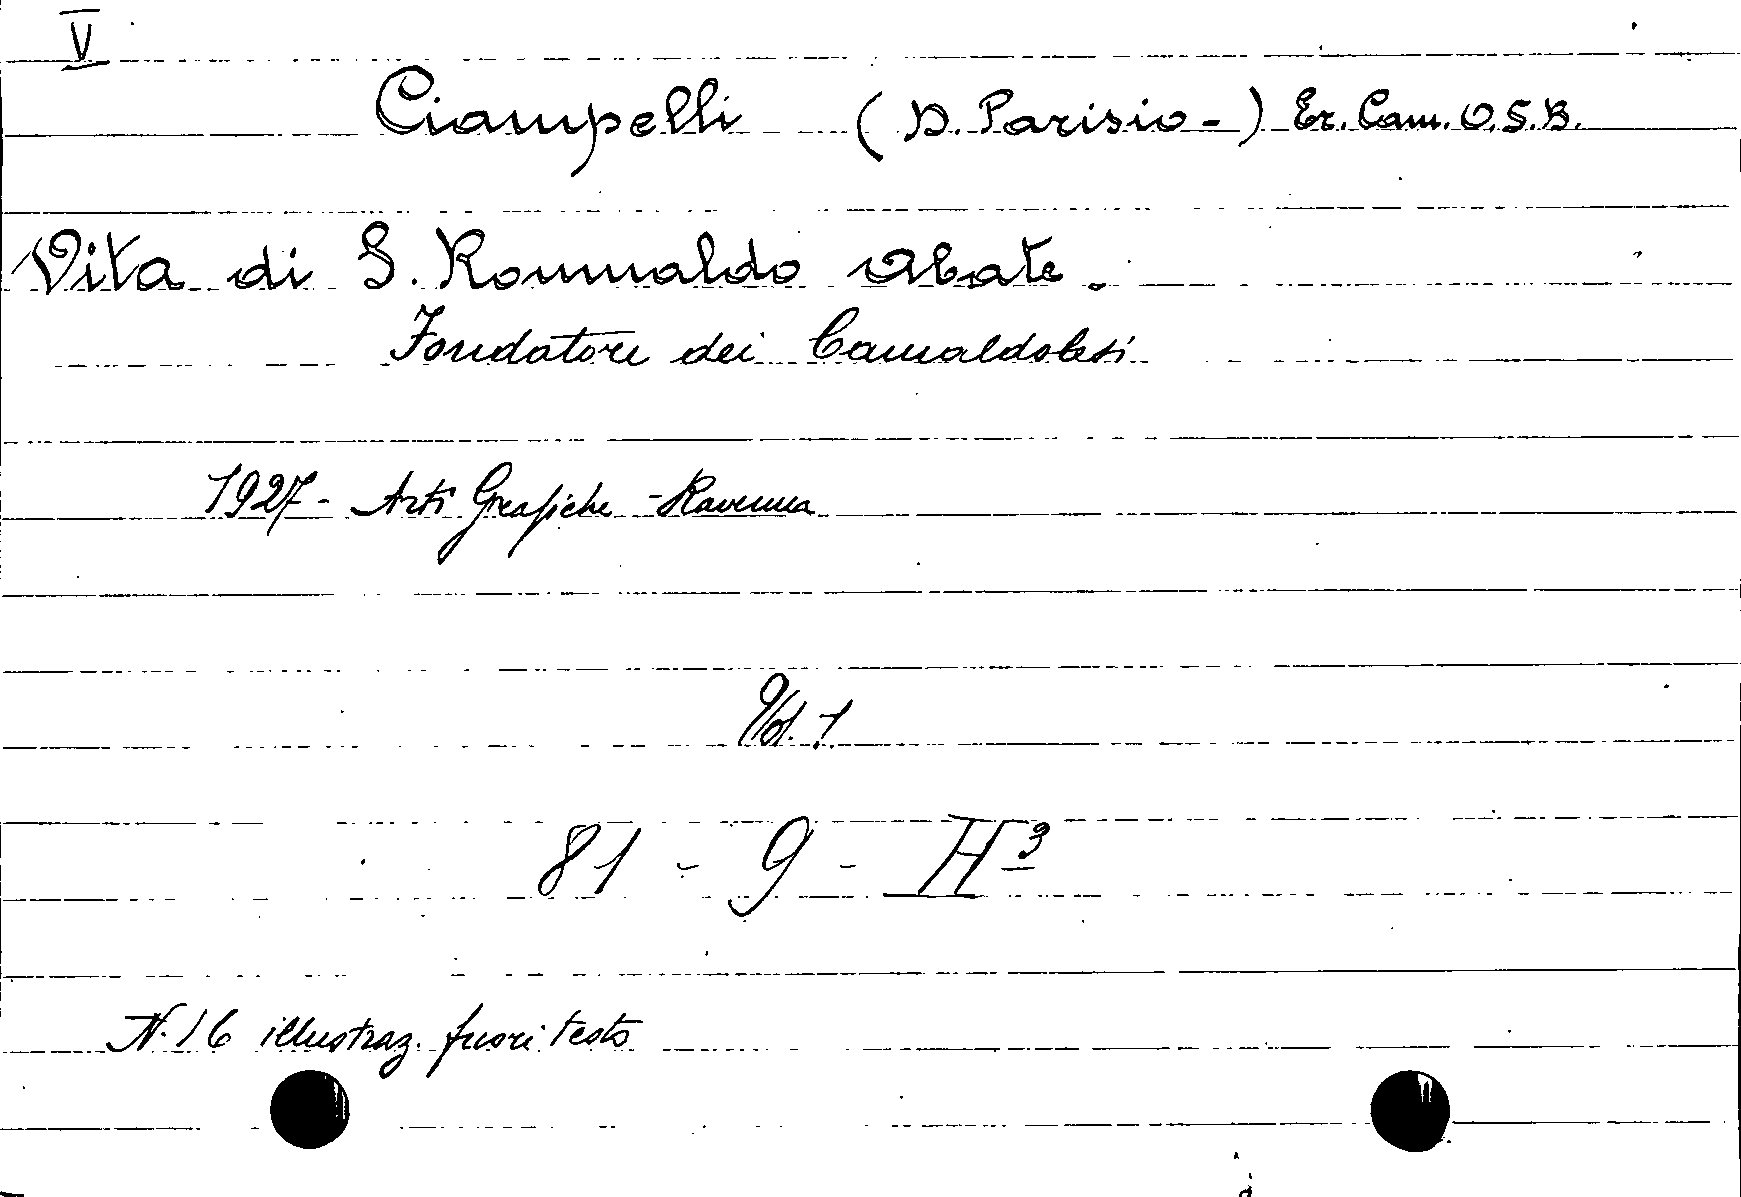 V
Ciampelli (D. Parisio-) Er. Cam. O.S.B.
Vita di S. Romualdo Abate.
Fondatore dei Camaldolesi
1927 - Arti Grafiche - Ravenna
Vol. 1
81 - 9 - H³
N. 16 illustraz. fuori testo